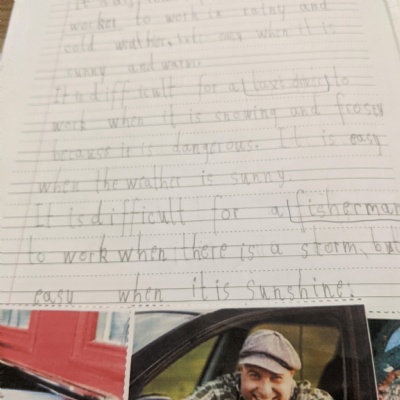 It is difficult for a
worker to work in rainy and
cold weather, but easy when it is
sunny and warm.
It is difficult for a bus driver to
work when it is snowing and frosen
because it is dangerous. It is easy
when the weather is sunny.
It is difficult for a fisherman
to work when there is a storm, but
easy when it is sunshine.